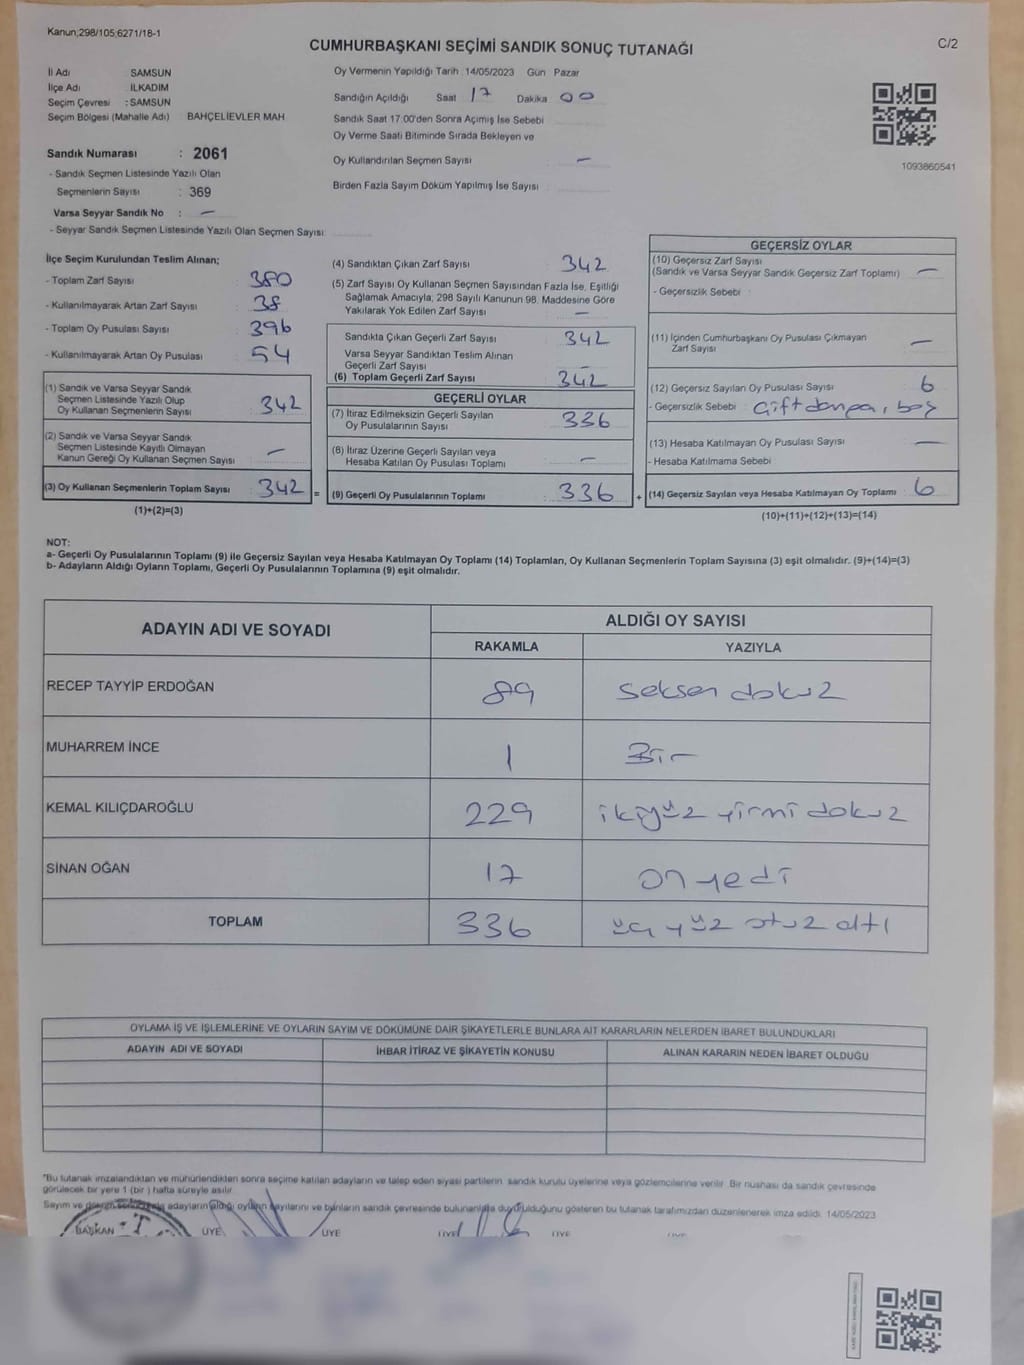 Kanun;298/105;6271/18-1
CUMHURBAŞKANI SEÇİMİ SANDIK SONUÇ TUTANAĞI
C/2
İl Adı : SAMSUN
İlçe Adı : İLKADIM
Seçim Çevresi : SAMSUN
Seçim Bölgesi (Mahalle Adı) BAHÇELİEVLER MAH
Sandık Numarası : 2061
- Sandık Seçmen Listesinde Yazılı Olan
Seçmenlerin Sayısı : 369
Varsa Seyyar Sandık No : -
- Seyyar Sandık Seçmen Listesinde Yazılı Olan Seçmen Sayısı:
Oy Vermenin Yapıldığı Tarih 14/05/2023 Gün Pazar
Sandığın Açıldığı Saat 17 Dakika 00
Sandık Saat 17:00'den Sonra Açımış İse Sebebi
Oy Verme Saati Bitiminde Sırada Bekleyen ve
Oy Kullandırılan Seçmen Sayısı -
Birden Fazla Sayım Döküm Yapılmış İse Sayısı
1093860541
İlçe Seçim Kurulundan Teslim Alınan;
- Toplam Zarf Sayısı : 380
- Kullanılmayarak Artan Zarf Sayısı : 38
- Toplam Oy Pusulası Sayısı : 396
- Kullanılmayarak Artan Oy Pusulası : 54
(1) Sandık ve Varsa Seyyar Sandık
Seçmen Listesinde Yazılı Olup
Oy Kullanan Seçmenlerin Sayısı : 342
(2) Sandık ve Varsa Seyyar Sandık
Seçmen Listesinde Kayıtlı Olmayan
Kanun Gereği Oy Kullanan Seçmen Sayısı : -
(3) Oy Kullanan Seçmenlerin Toplam Sayısı : 342 =
(1)+(2)=(3)
(4) Sandıktan Çıkan Zarf Sayısı : 342
(5) Zarf Sayısı Oy Kullanan Seçmen Sayısından Fazla İse, Eşitliği
Sağlamak Amacıyla; 298 Sayılı Kanunun 98. Maddesine Göre
Yakılarak Yok Edilen Zarf Sayısı : -
Sandıkta Çıkan Geçerli Zarf Sayısı : 342
Varsa Seyyar Sandıktan Teslim Alınan
Geçerli Zarf Sayısı
(6) Toplam Geçerli Zarf Sayısı : 342
GEÇERLİ OYLAR
(7) İtiraz Edilmeksizin Geçerli Sayılan
Oy Pusulalarının Sayısı : 336
(8) İtiraz Üzerine Geçerli Sayılan veya
Hesaba Katılan Oy Pusulası Toplamı : -
(9) Geçerli Oy Pusulalarının Toplamı : 336 +
GEÇERSİZ OYLAR
(10) Geçersiz Zarf Sayısı
(Sandık ve Varsa Seyyar Sandık Geçersiz Zarf Toplamı) : -
- Geçersizlik Sebebi :
(11) İçinden Cumhurbaşkanı Oy Pusulası Çıkmayan
Zarf Sayısı : -
(12) Geçersiz Sayılan Oy Pusulası Sayısı : 6
- Geçersizlik Sebebi : Çift damga, boş
(13) Hesaba Katılmayan Oy Pusulası Sayısı : -
- Hesaba Katılmama Sebebi
(14) Geçersiz Sayılan veya Hesaba Katılmayan Oy Toplamı : 6
(10)+(11)+(12)+(13)=(14)
NOT:
a- Geçerli Oy Pusulalarının Toplamı (9) ile Geçersiz Sayılan veya Hesaba Katılmayan Oy Toplamı (14) Toplamları, Oy Kullanan Seçmenlerin Toplam Sayısına (3) eşit olmalıdır. (9)+(14)=(3)
b- Adayların Aldığı Oyların Toplamı, Geçerli Oy Pusulalarının Toplamına (9) eşit olmalıdır.
ADAYIN ADI VE SOYADI ALDIĞI OY SAYISI
RAKAMLA YAZIYLA
RECEP TAYYİP ERDOĞAN 89 seksen dokuz
MUHARREM İNCE 1 Bir
KEMAL KILIÇDAROĞLU 229 ikiyüz yirmi dokuz
SİNAN OĞAN 17 on yedi
TOPLAM 336 üç yüz otuz altı
OYLAMA İŞ VE İŞLEMLERİNE VE OYLARIN SAYIM VE DÖKÜMÜNE DAİR ŞİKAYETLERLE BUNLARA AİT KARARLARIN NELERDEN İBARET BULUNDUKLARI
ADAYIN ADI VE SOYADI İHBAR İTİRAZ VE ŞİKAYETİN KONUSU ALINAN KARARIN NEDEN İBARET OLDUĞU
"Bu tutanak imzalandıktan ve mühürlendikten sonra seçime katılan adayların ve talep eden siyasi partilerin sandık kurulu üyelerine veya gözlemcilerine verilir. Bir nüshası da sandık çevresinde
görülecek bir yere 1 (bir) hafta süreyle asılır.
Sayım ve döküm sonucunda adayların aldığı oyların sayılarını ve bunların sandık çevresinde bulunanlara duyurulduğunu gösteren bu tutanak tarafımızdan düzenlenerek imza edildi. 14/05/2023
BAŞKAN ÜYE ÜYE ÜYE ÜYE ÜYE